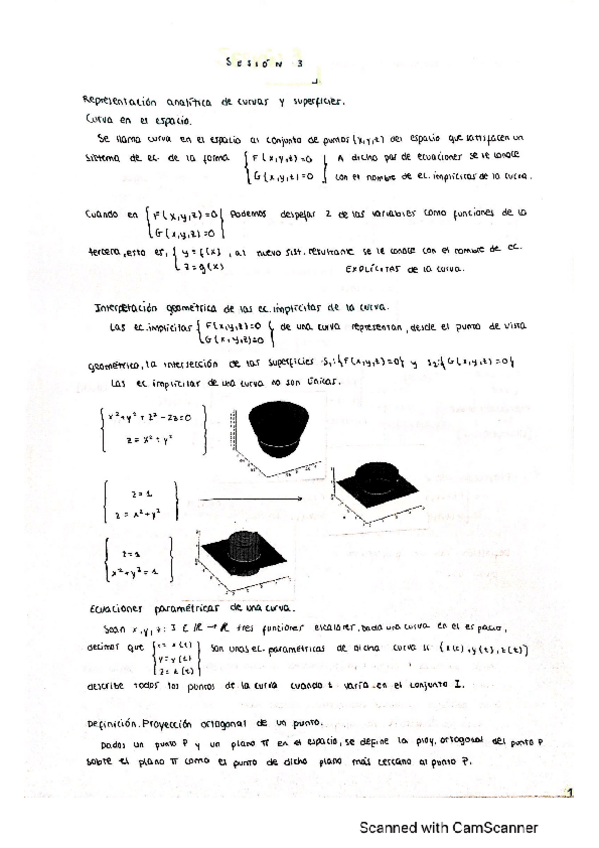 SESIÓN 3
Representación analítica de curvas y superficies.
Curva en el espacio.
Se llama curva en el espacio al conjunto de puntos (x,y,z) del espacio que satisfacen un
sistema de ec. de la forma { F(x,y,z)=0 } A dicho par de ecuaciones se le conoce
G(x,y,z)=0 con el nombre de ec. implícitas de la curva.
Cuando en { F(x,y,z)=0 } Podemos despejar 2 de las variables como funciones de la
G(x,y,z)=0
tercera, esto es, { y=f(x) , al nuevo sist. resultante se le conoce con el nombre de ec.
z=g(x) EXPLÍCITAS de la curva.
Interpretación geométrica de las ec. implícitas de la curva.
Las ec. implícitas { F(x,y,z)=0 } de una curva representan, desde el punto de vista
G(x,y,z)=0
geométrico, la intersección de las superficies S₁:{F(x,y,z)=0} y S₂:{G(x,y,z)=0}
Las ec implícitas de una curva no son únicas.
x²+y²+z²-2z=0
z=x²+y²
z=1
z=x²+y²
z=1
x²+y²=1
Ecuaciones paramétricas de una curva.
Sean x,y,z: I ⊂ R → R tres funciones escalares. Dada una curva en el espacio,
decimos que { x=x(t) son unas ec. paramétricas de dicha curva si (x(t),y(t),z(t))
y=y(t)
z=z(t)
describe todos los puntos de la curva cuando t varía en el conjunto I.
Definición. Proyección ortogonal de un punto.
Dados un punto P y un plano π en el espacio, se define la proy. ortogonal del punto P
sobre el plano π como el punto de dicho plano más cercano al punto P.
1
Scanned with CamScanner